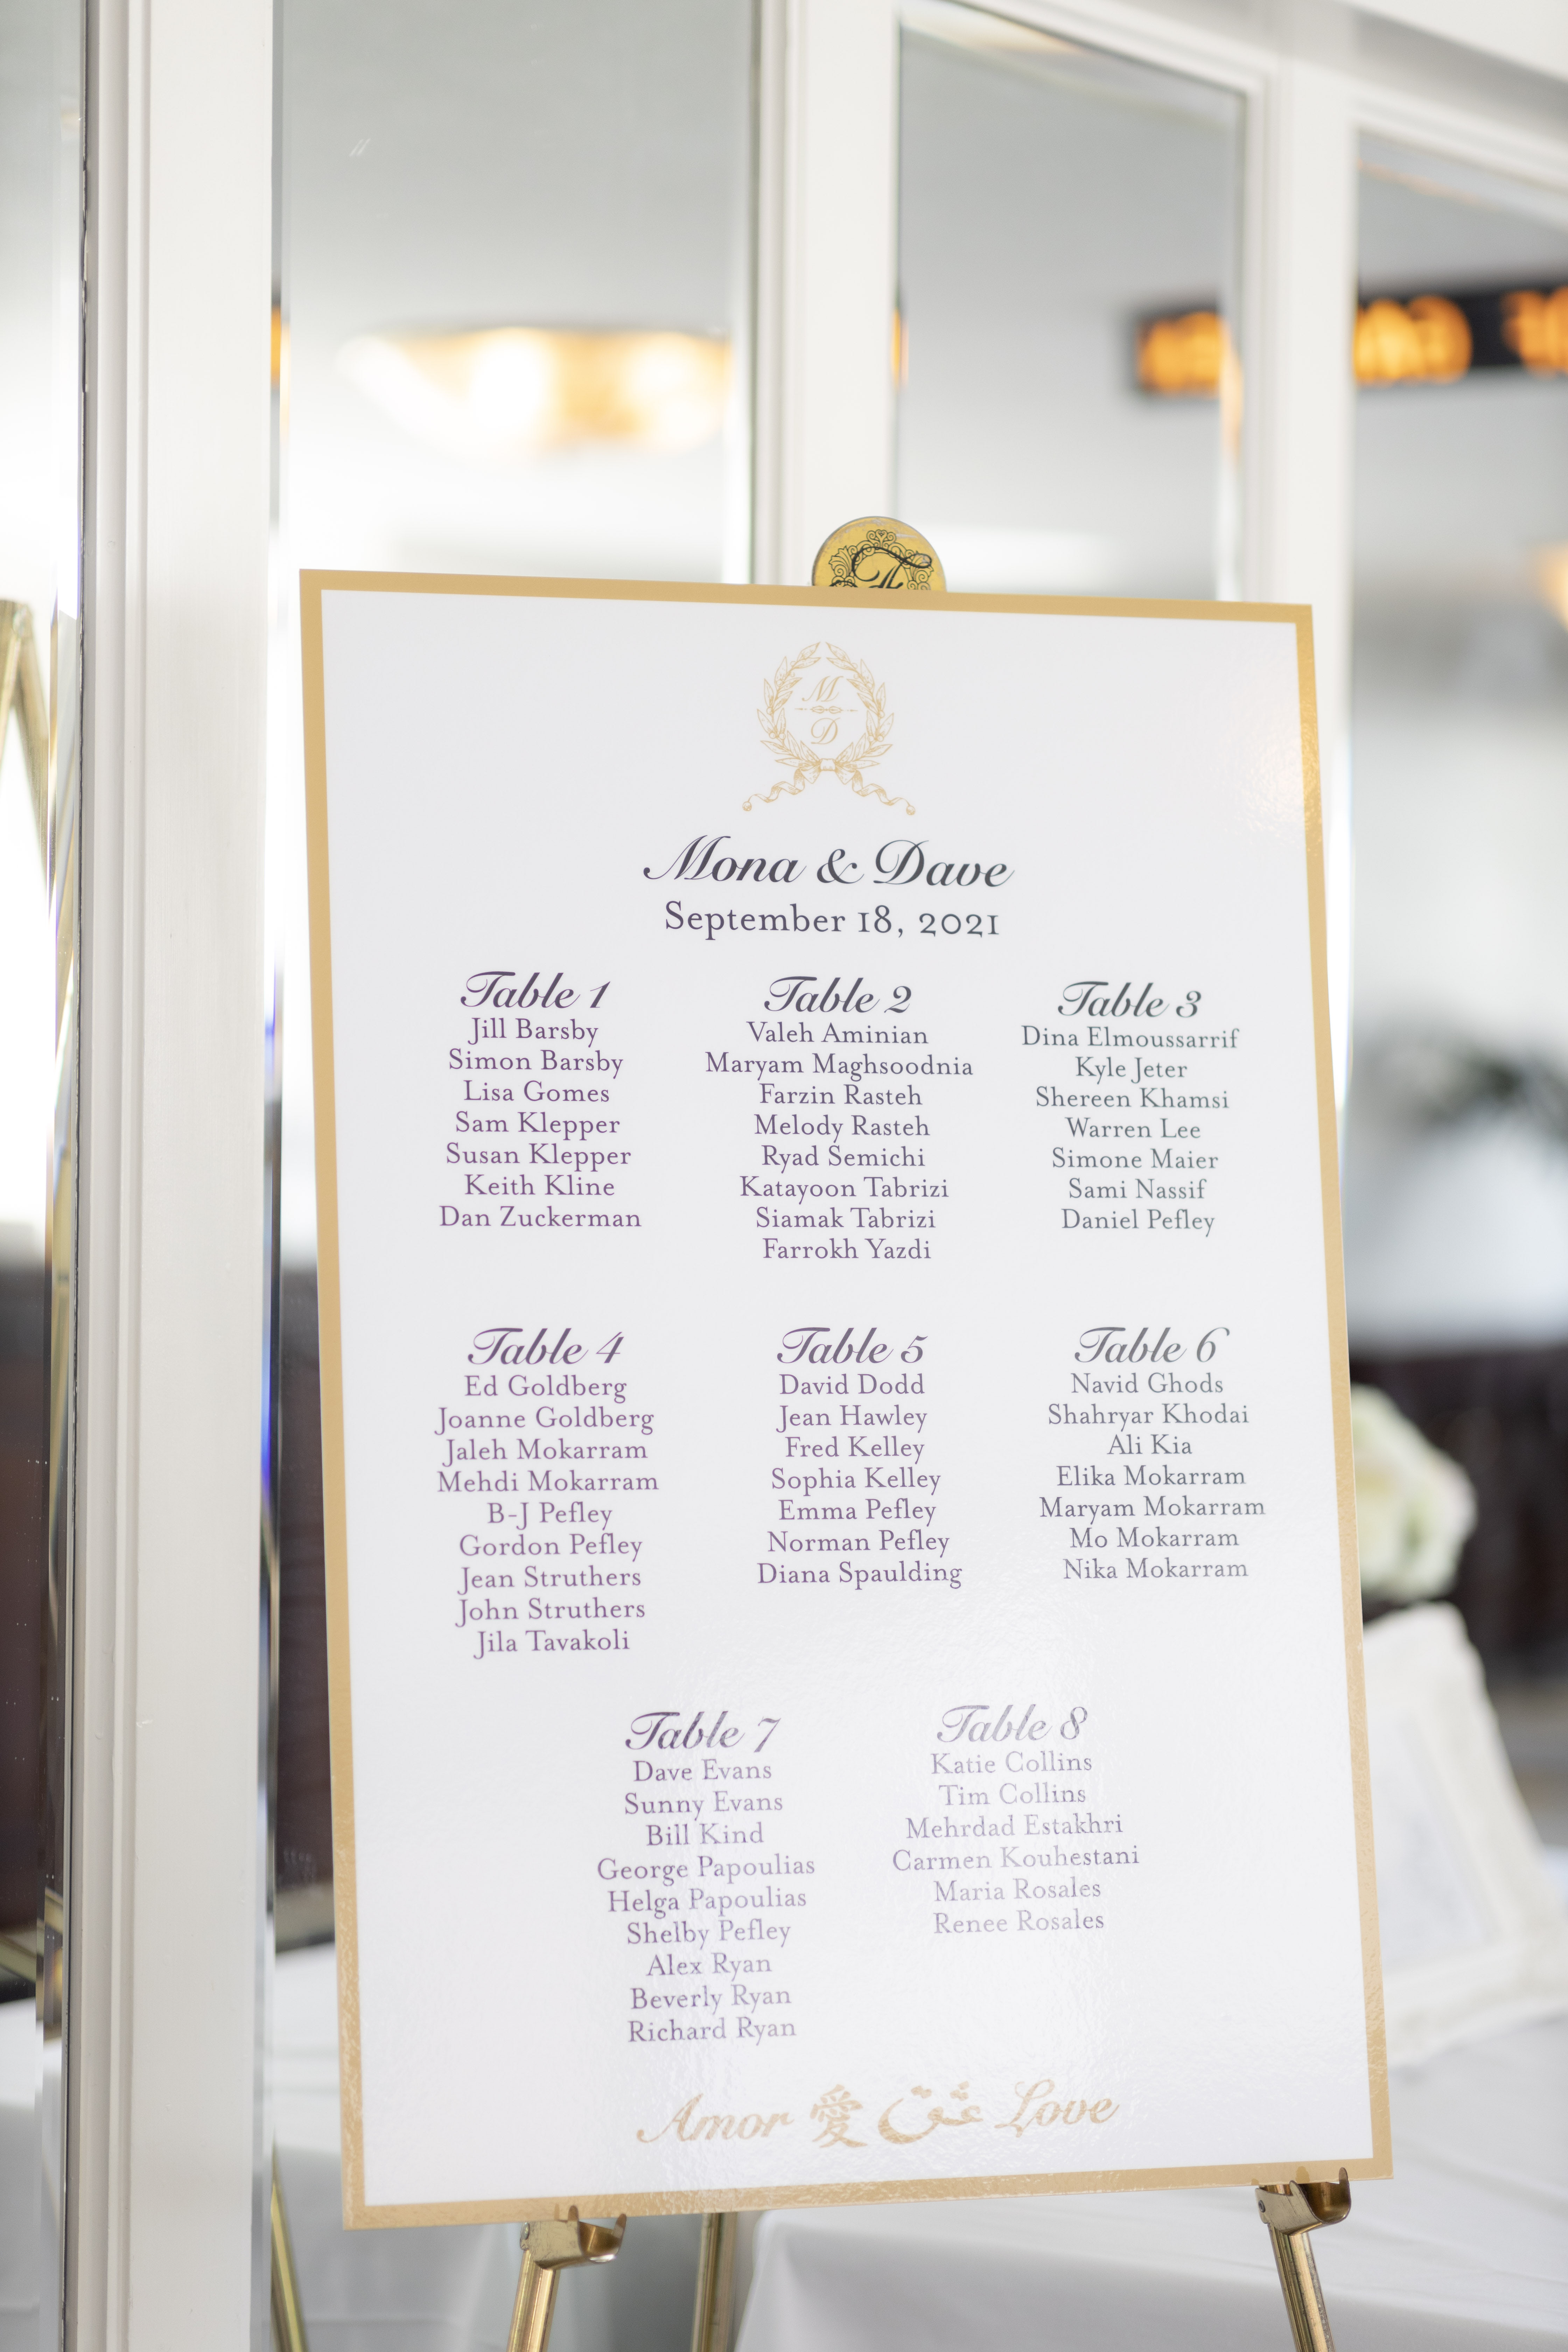 M
D
Mona & Dave
September 18, 2021
Table 1
Jill Barsby
Simon Barsby
Lisa Gomes
Sam Klepper
Susan Klepper
Keith Kline
Dan Zuckerman
Table 2
Valeh Aminian
Maryam Maghsoodnia
Farzin Rasteh
Melody Rasteh
Ryad Semichi
Katayoon Tabrizi
Siamak Tabrizi
Farrokh Yazdi
Table 3
Dina Elmoussarrif
Kyle Jeter
Shereen Khamsi
Warren Lee
Simone Maier
Sami Nassif
Daniel Pefley
Table 4
Ed Goldberg
Joanne Goldberg
Jaleh Mokarram
Mehdi Mokarram
B-J Pefley
Gordon Pefley
Jean Struthers
John Struthers
Jila Tavakoli
Table 5
David Dodd
Jean Hawley
Fred Kelley
Sophia Kelley
Emma Pefley
Norman Pefley
Diana Spaulding
Table 6
Navid Ghods
Shahryar Khodai
Ali Kia
Elika Mokarram
Maryam Mokarram
Mo Mokarram
Nika Mokarram
Table 7
Dave Evans
Sunny Evans
Bill Kind
George Papoulias
Helga Papoulias
Shelby Pefley
Alex Ryan
Beverly Ryan
Richard Ryan
Table 8
Katie Collins
Tim Collins
Mehrdad Estakhri
Carmen Kouhestani
Maria Rosales
Renee Rosales
Amor 愛 عشق Love